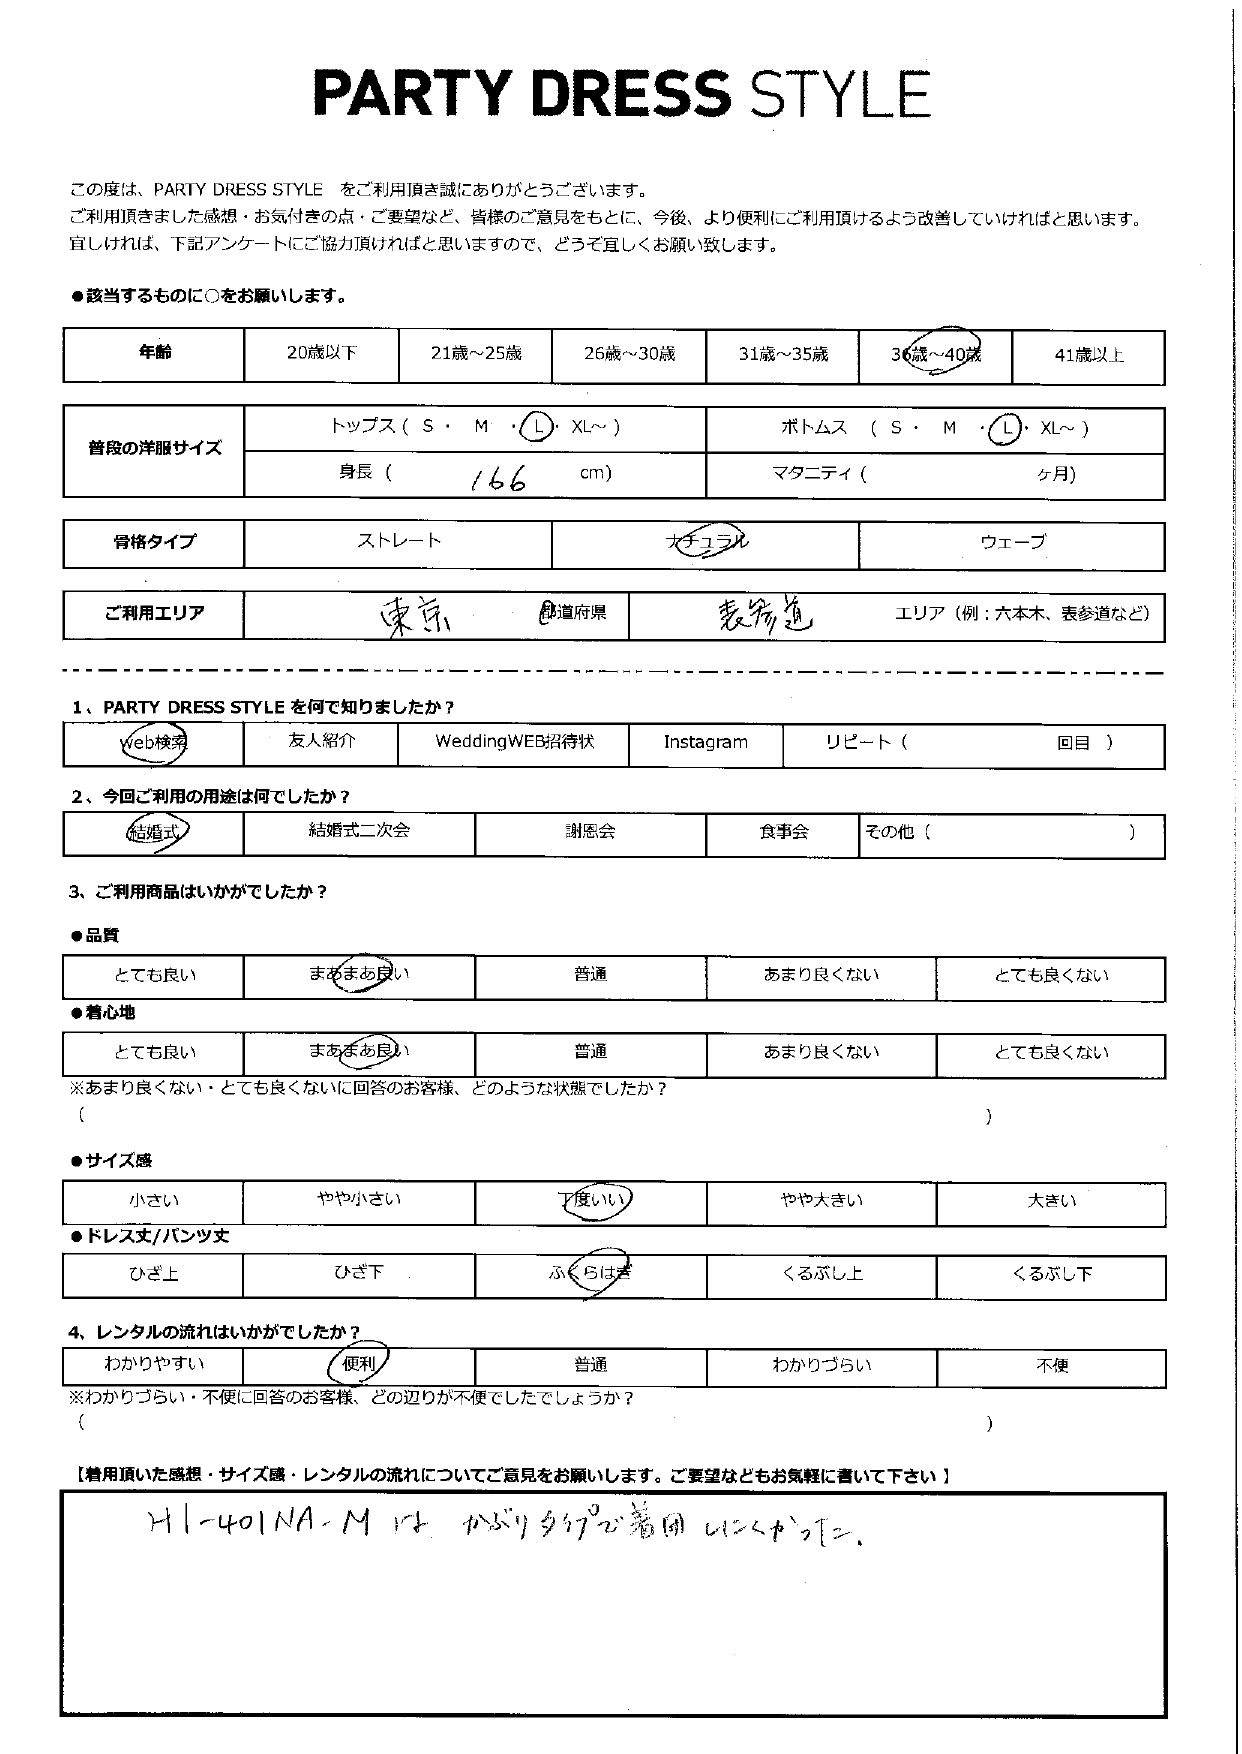 PARTY DRESS STYLE
この度は、PARTY DRESS STYLE をご利用頂き誠にありがとうございます。
ご利用頂きました感想・お気付きの点・ご要望など、皆様のご意見をもとに、今後、より便利にご利用頂けるよう改善していければと思います。
宜しければ、下記アンケートにご協力頂ければと思いますので、どうぞ宜しくお願い致します。
●該当するものに○をお願いします。
年齢 20歳以下 21歳～25歳 26歳～30歳 31歳～35歳 36歳～40歳 41歳以上
普段の洋服サイズ トップス ( S ・ M ・ L ・ XL～ ) ボトムス ( S ・ M ・ L ・ XL～ )
身長 ( 166 cm) マタニティ ( ヶ月)
骨格タイプ ストレート ナチュラル ウェーブ
ご利用エリア 東京 都道府県 表参道 エリア（例：六本木、表参道など）
1、PARTY DRESS STYLE を何で知りましたか？
web検索 友人紹介 WeddingWEB招待状 Instagram リピート ( 回目 )
2、今回ご利用の用途は何でしたか？
結婚式 結婚式二次会 謝恩会 食事会 その他 ( )
3、ご利用商品はいかがでしたか？
●品質
とても良い まあまあ良い 普通 あまり良くない とても良くない
●着心地
とても良い まあまあ良い 普通 あまり良くない とても良くない
※あまり良くない・とても良くないに回答のお客様、どのような状態でしたか？
( )
●サイズ感
小さい やや小さい 丁度いい やや大きい 大きい
●ドレス丈/パンツ丈
ひざ上 ひざ下 ふくらはぎ くるぶし上 くるぶし下
4、レンタルの流れはいかがでしたか？
わかりやすい 便利 普通 わかりづらい 不便
※わかりづらい・不便に回答のお客様、どの辺りが不便でしたでしょうか？
( )
【着用頂いた感想・サイズ感・レンタルの流れについてご意見をお願いします。ご要望などもお気軽に書いて下さい】
H1-401NA-M は かぶりタイプで着 しにくかった.